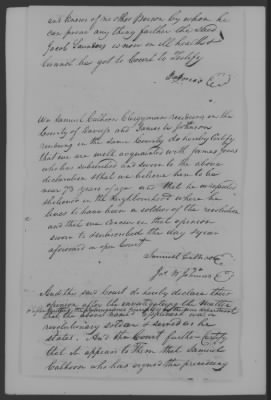 and knows of no other Person by whom he
can prove any thing further the said
Jacob Saunders is now in ill health &
cannot be got to Court to Testify
We Samuel Calhoon Clergyman residing in the
County of Daviess and James W Johnson
residing in the same County do hereby Certify
that we are well acquainted with James Jones
who has subscribed and sworn to the above
declaration that we believe him to be
near 73 years of age and that he is reputed
& believed in the Neighbourhood where he
lives to have been a soldier of the revolution
and that we concur in that opinion
sworn to & subscribed the day & year
aforesaid in open Court
Samuel Calhoon
Jas W Johnson
And the said Court do hereby declare their
opinion after the investigating the Matter
& after putting the interrogatories by the war department
that the above named applicant was a
revolutionary soldier & served as he
states. And the Court further Certify
that it appears to them that Samuel
Calhoon who has signed the preceeding